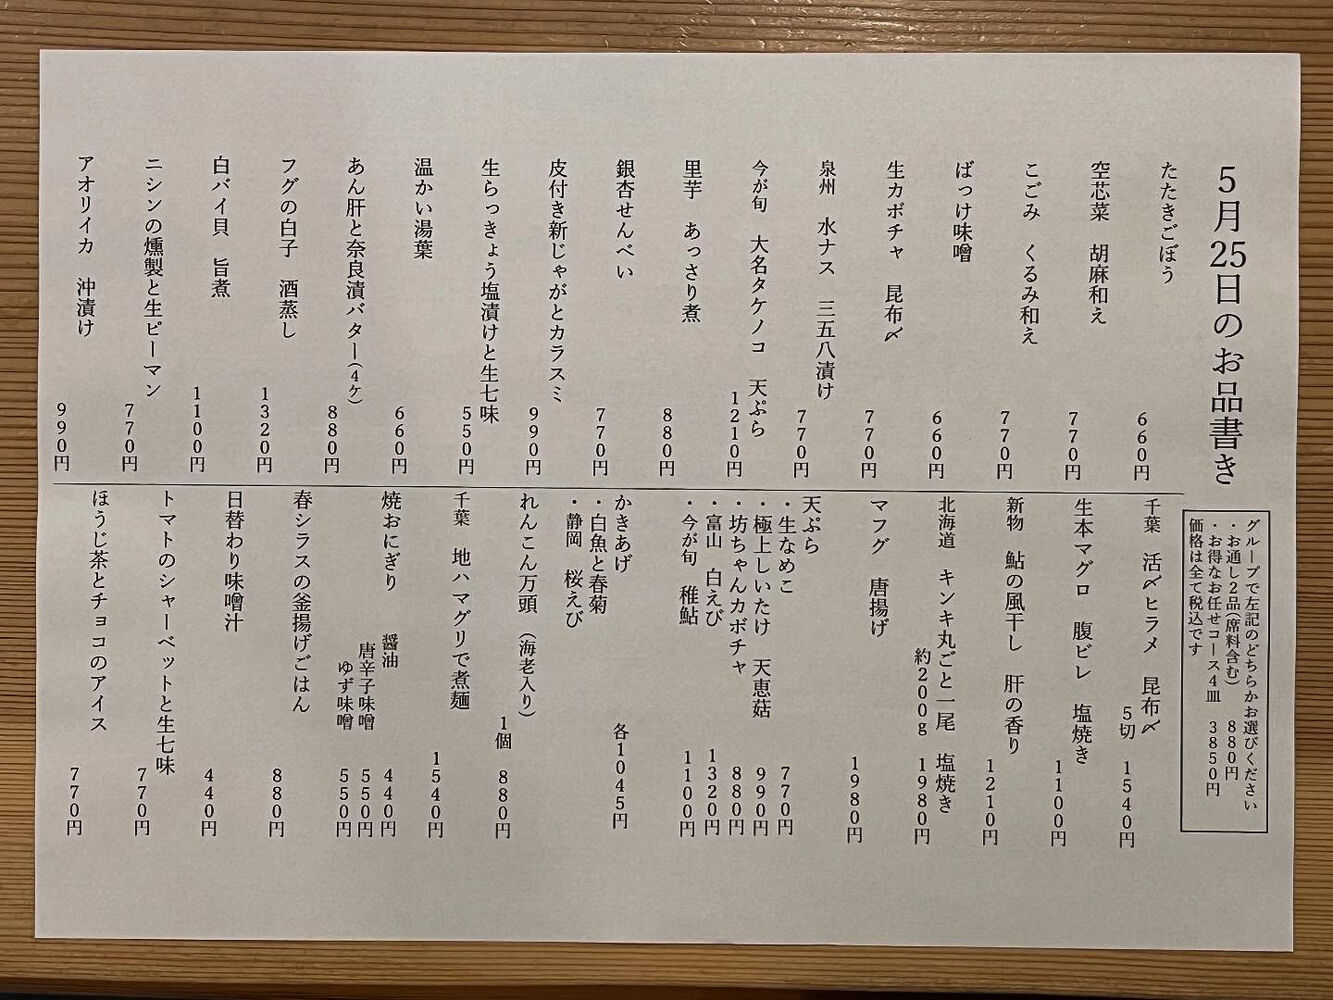 5月25日のお品書き
たたきごぼう
660円
空芯菜　胡麻和え
770円
こごみ　くるみ和え
770円
ばっけ味噌
660円
生カボチャ　昆布〆
770円
泉州　水ナス　三五八漬け
770円
今が旬　大名タケノコ　天ぷら
1210円
里芋　あっさり煮
880円
銀杏せんべい
770円
皮付き新じゃがとカラスミ
990円
生らっきょう塩漬けと生七味
550円
温かい湯葉
660円
あん肝と奈良漬バター(4ケ)
880円
フグの白子　酒蒸し
1320円
白バイ貝　旨煮
1100円
ニシンの燻製と生ピーマン
770円
アオリイカ　沖漬け
990円
グループで左記のどちらかお選びください
・お通し2品(席料含む)　880円
・お得なお任せコース4皿　3850円
価格は全て税込です
千葉　活〆ヒラメ　昆布〆
5切　1540円
生本マグロ　腹ビレ　塩焼き
1100円
新物　鮎の風干し　肝の香り
1210円
北海道　キンキ丸ごと一尾　塩焼き
約200g　1980円
マフグ　唐揚げ
1980円
天ぷら
・生なめこ　770円
・極上しいたけ　天恵菇　990円
・坊ちゃんカボチャ　880円
・富山　白えび　1320円
・今が旬　稚鮎　1100円
かきあげ　各1045円
・白魚と春菊
・静岡　桜えび
れんこん万頭（海老入り）
1個　880円
千葉　地ハマグリで煮麺
1540円
焼おにぎり　醤油　440円
唐辛子味噌　550円
ゆず味噌　550円
春シラスの釜揚げごはん
880円
日替わり味噌汁
440円
トマトのシャーベットと生七味
770円
ほうじ茶とチョコのアイス
770円